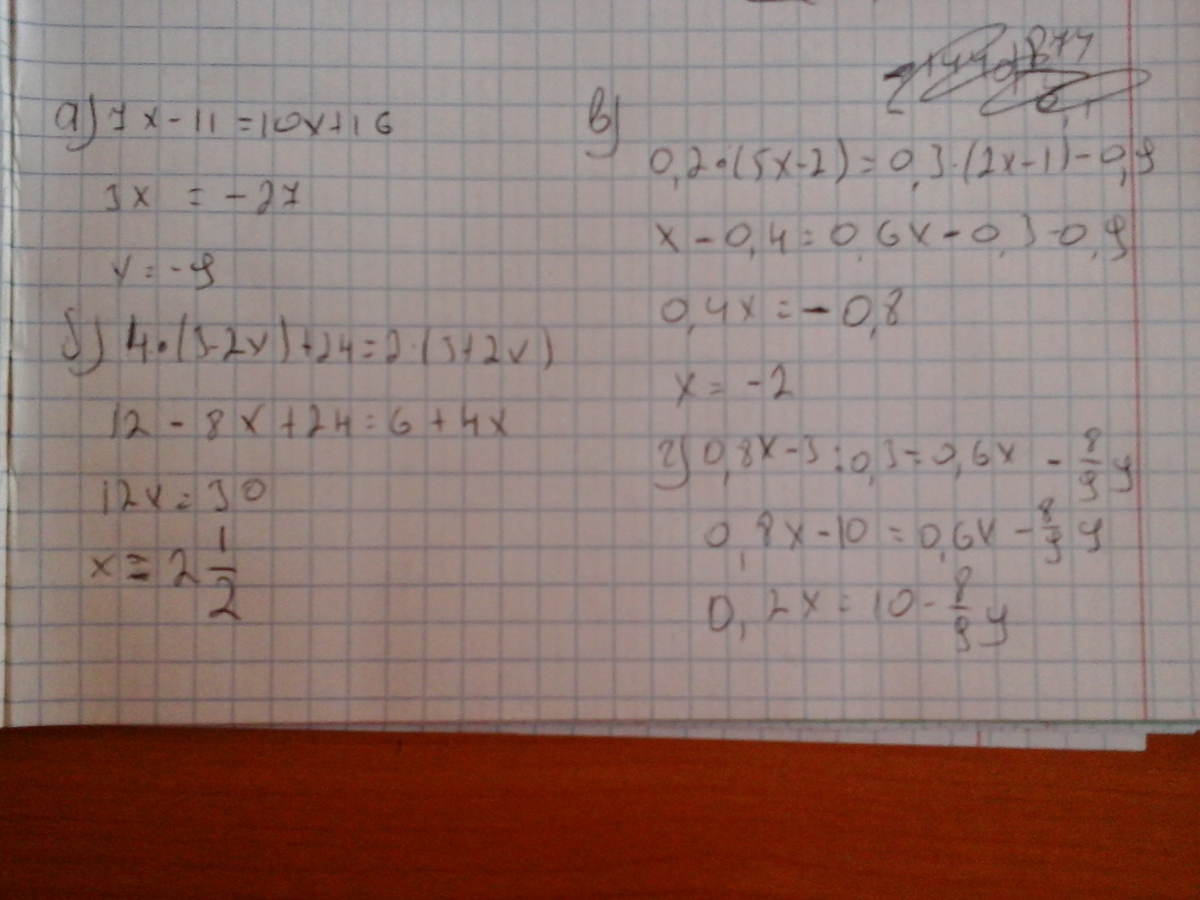 а) 7x-11=10x+16
3x = -27
x=-9
б) 4·(3-2x)+24=2·(3+2x)
12-8x+24=6+4x
12x=30
x=2 1/2
в)
0,2·(5x-2)=0,3·(2x-1)-0,9
x-0,4=0,6x-0,3-0,9
0,4x=-0,8
x=-2
г) 0,8x-3:0,3=0,6x - 8/9 y
0,8x-10=0,6x-8/9 y
0,2x=10-8/9 y